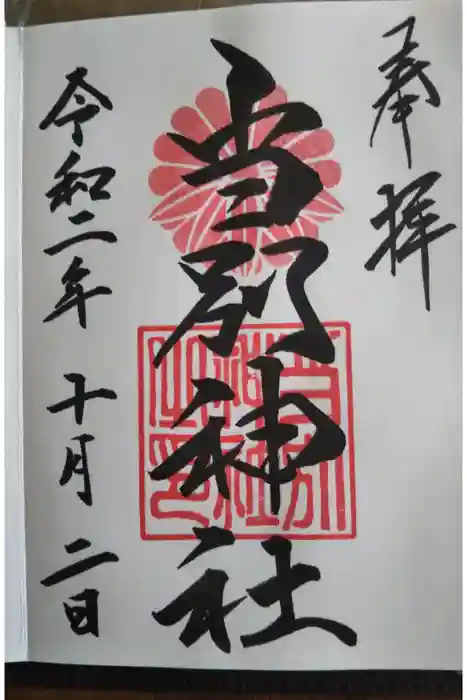 奉拝
当別神社
令和二年十月二日